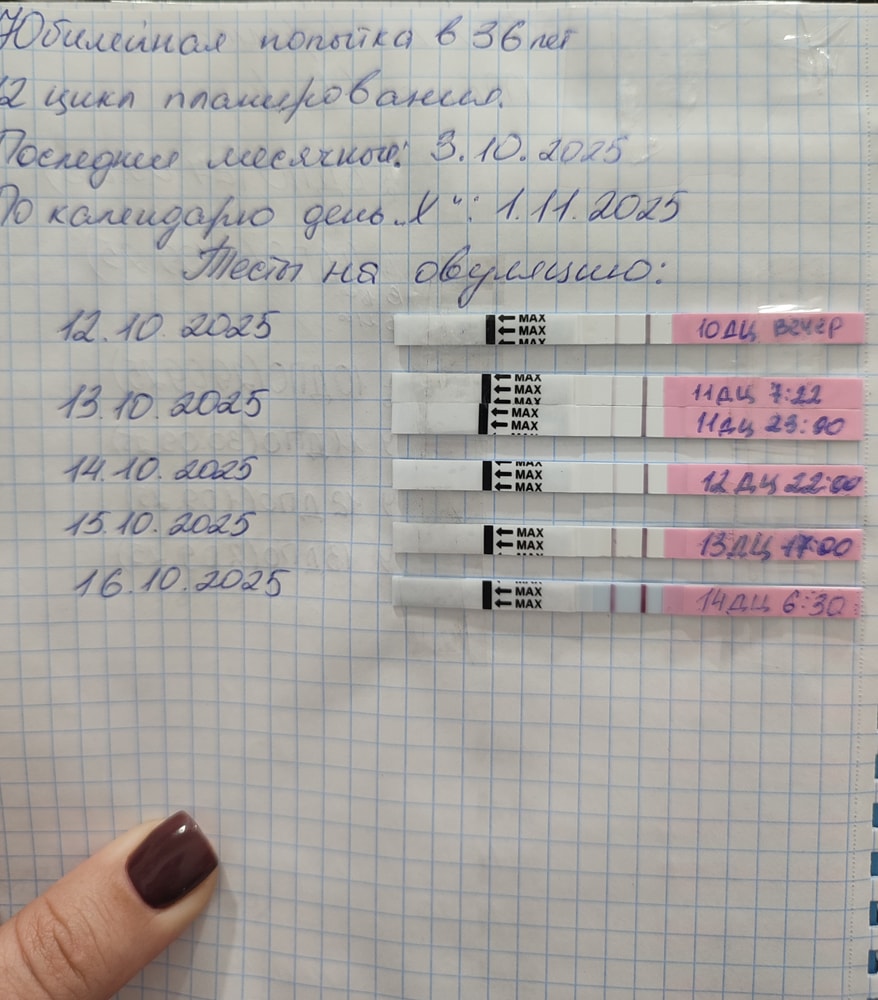 Юбилейная попытка в 36 лет
12 цикл планирования.
Последние месячные: 3.10.2025
По календарю день „X“: 1.11.2025
Тесты на овуляцию:
12.10.2025
MAX
MAX
MAX
10ДЦ ВЕЧЕР
13.10.2025
MAX
MAX
MAX
11ДЦ 7:22
MAX
MAX
11ДЦ 23:00
14.10.2025
MAX
MAX
MAX
12ДЦ 22:00
15.10.2025
MAX
MAX
13ДЦ 17:00
16.10.2025
MAX
MAX
14ДЦ 6:30